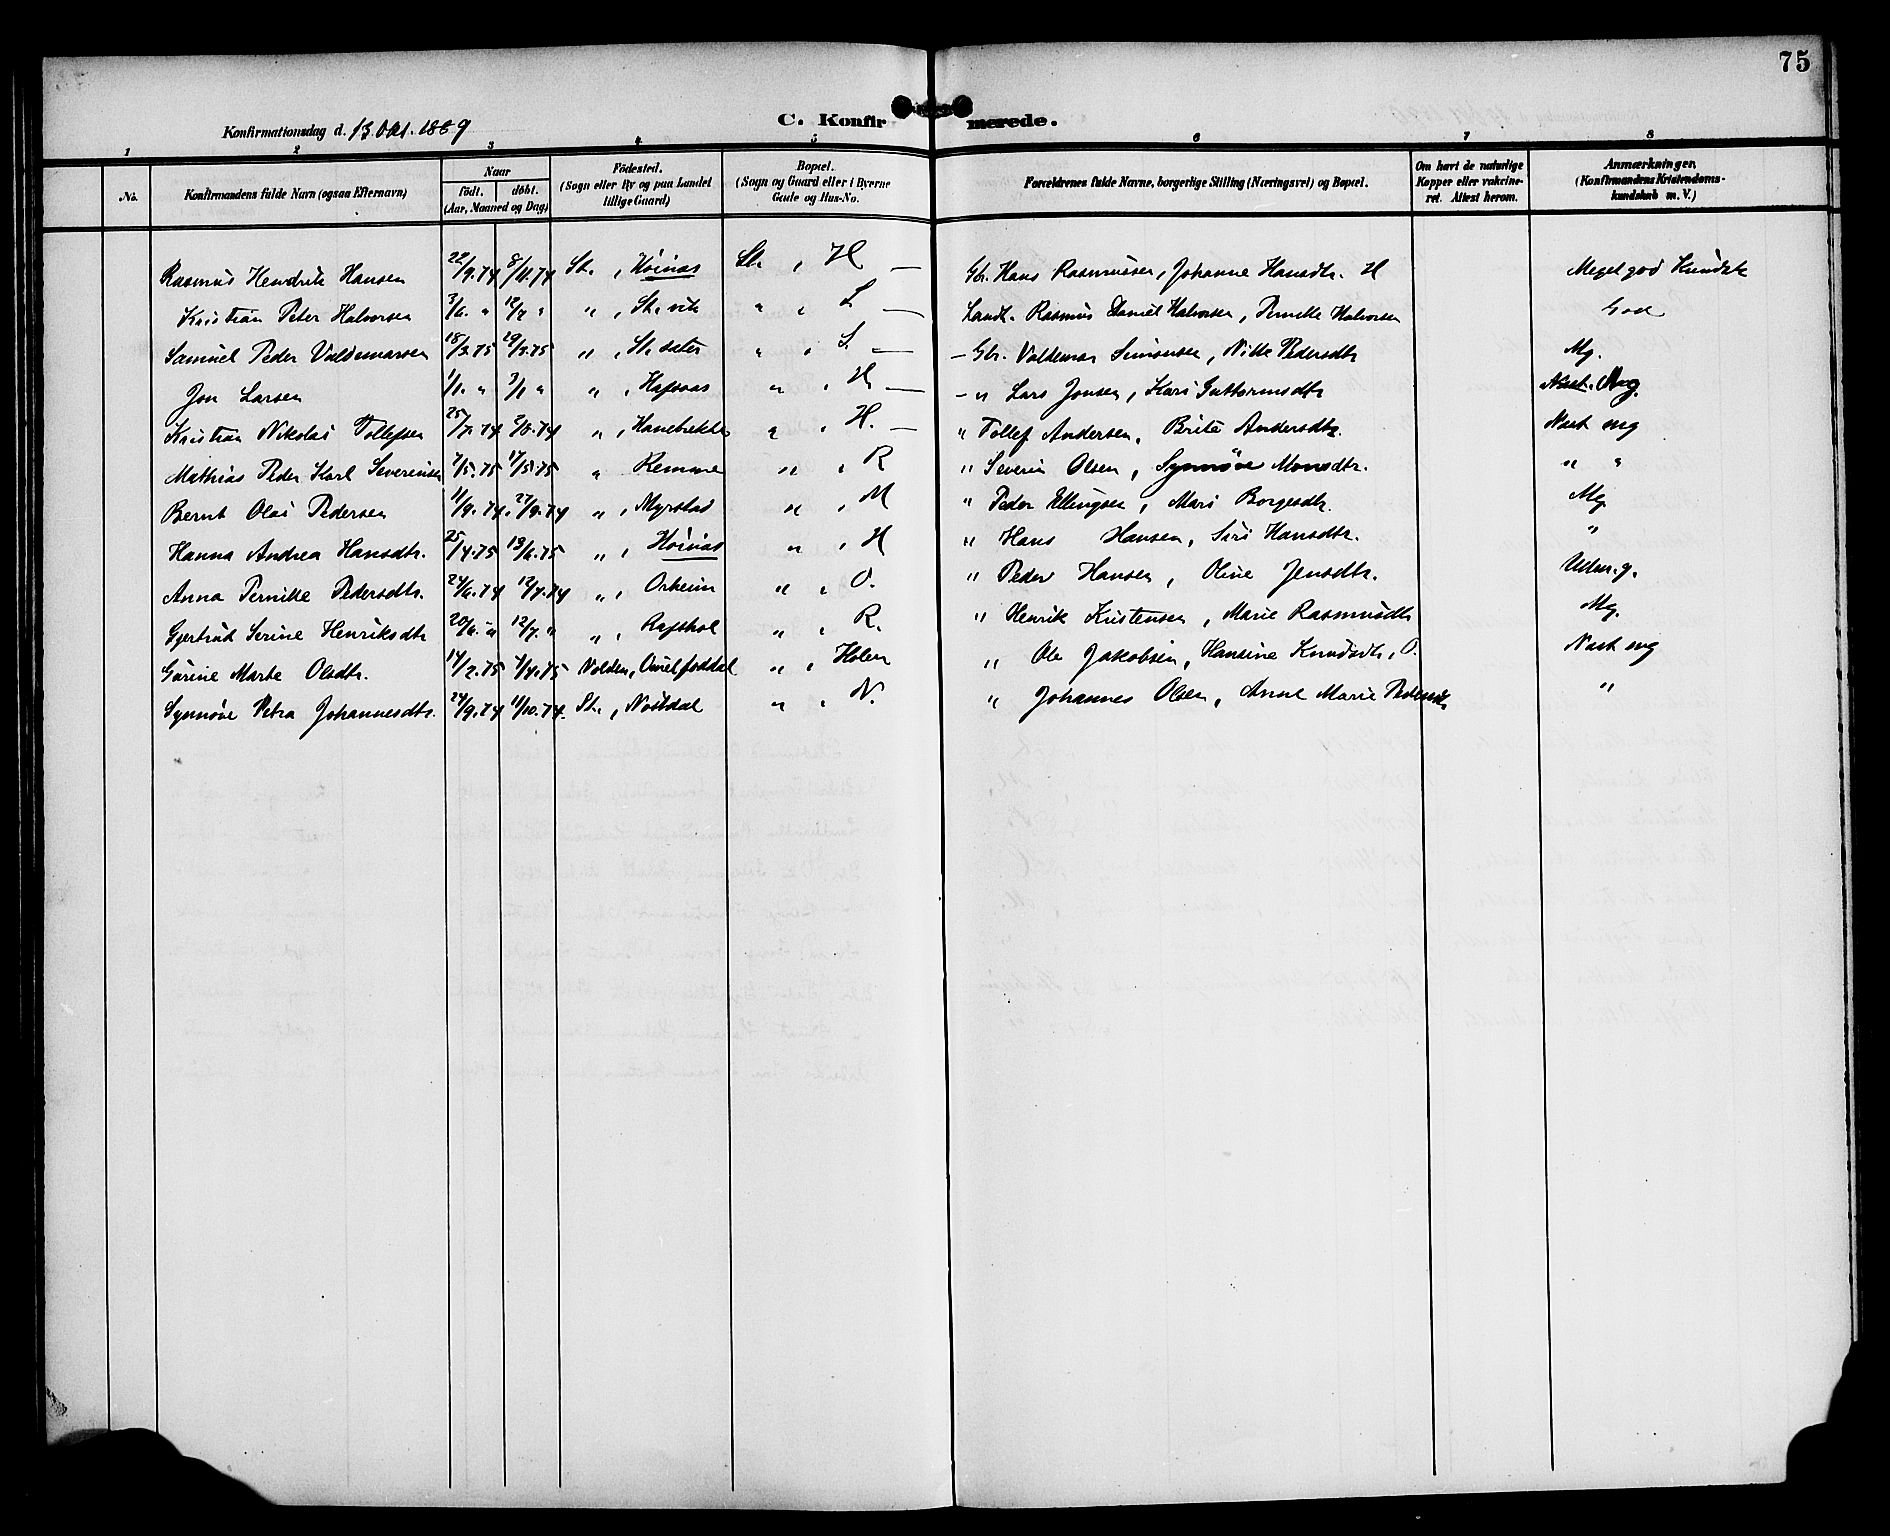 75
Konfirmationsdag d. 13 Okt. 1889
C. Konfirmerede.
1 2 3 4 5 6 7 8
No. Konfirmandens fulde Navn (ogsaa Efternavn) Naar födt. döbt. (Aar, Maaned og Dag) Födested. (Sogn eller By og paa Landet tillige Gaard) Bopæl. (Sogn og Gaard eller i Byerne Gade og Hus-No. Forældrenes fulde Navne, borgerlige Stilling (Næringsvei) og Bopæl. Om havt de naturlige Kopper eller vakcineret. Attest herom. Anmærkninger. (Konfirmandens Kristendomskundskab m. V.)
Rasmus Hendrik Hansen 22/9.74 8/11.74 St., Hoinas St., H — Gbr. Hans Rasmussen, Johanne Hansdtr. H Meget god Kundsk
Kristian Peter Halvorsen 3/6. " 12/7 " ", St.vik " , S. — Landh. Rasmus Daniel Halvorsen, Pernille Halvorsen God
Samuel Peder Valdemarsen 18/3.75 29/3.75 ", St.sæter " , S. — — Gbr. Valdemar Simonsen, Nille Pedersdtr Mg.
Jon Larsen 1/1. " 3/1 " ", Hafsaas " , H. — — " Lars Jonsen, Kari Guttormsdtr Mg.
Kristian Nikolai Tollefsen 25/7.74 2/8.74 ", Hanebrekke " , H. — " Tollef Andersen, Brita Andersdtr. Næst mg
Mathias Peder Karl Severinsen 7/5.75 17/5.75 " Remme " , R " Severin Olsen, Synnöve Monsdtr. " "
Bernt Olai Pedersen 11/9.74. 27/9.74 ", Myrstad " , M " Peder Ellingsen, Mari Borgesdtr. Mg
Hanna Andrea Hansdtr. 25/4.75 13/6.75 ", Hoinas " , H " Hans Hansen, Siri Hansdtr. "
Anna Pernille Pedersdtr. 24/6.74 12/7.74 ", Orheim " , O. " Peder Hansen, Oline Jensdtr. Udm.g.
Gjertrud Serine Henriksdtr 20/6. " 12/7. " ", Rafshol " , R. " Henrik Kristensen, Marie Rasmusdtr Mg.
Gurine Marte Olsdtr. 14/2.75 4/4.75 Volden, " , Holen " Ole Jakobsen, Hansine Knudsdtr, O. Næst mg
Synnöve Petra Johannesdtr. 24/9.74 11/10.74. St., Nosdal " , N. " Johannes Olsen, Anne Marie Pedersdtr "